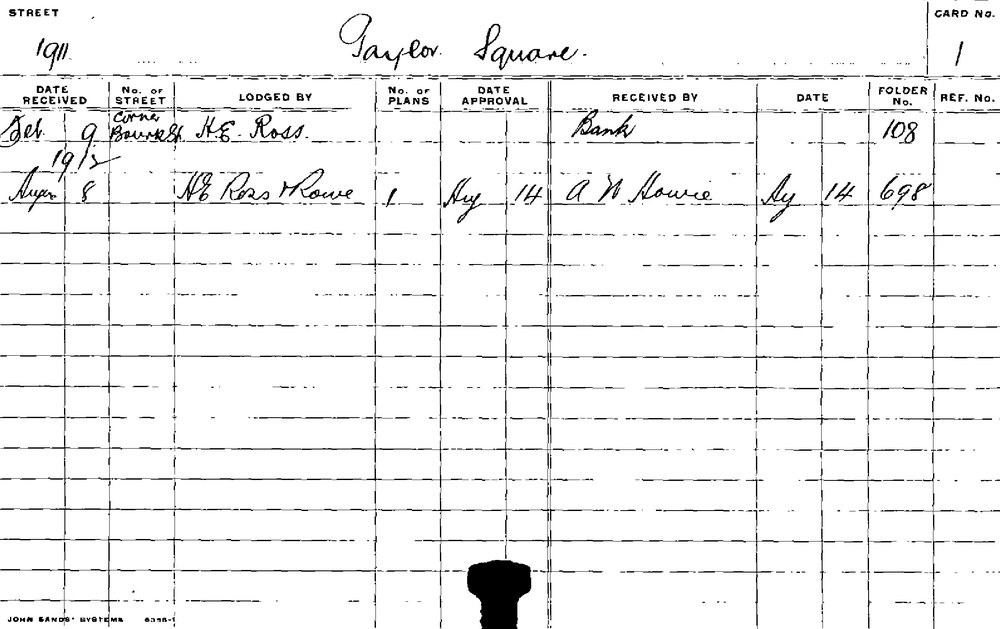 STREET
CARD No.
1911. Taylor Square. 1
DATE RECEIVED No. OF STREET LODGED BY No. OF PLANS DATE APPROVAL RECEIVED BY DATE FOLDER No. REF. No.
Feb. 9 Corner Bourke St. H.E. Ross. Bank 108
1912
8 HE Ross & Rowe 1 Aug 14 A W Howie Ag 14 698
JOHN SANDS' SYSTEMS